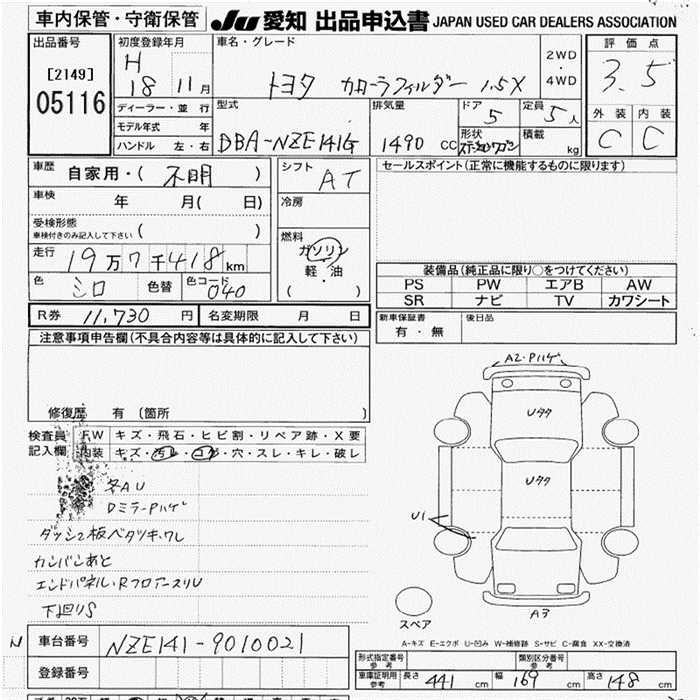 車内保管・守衛保管 JU 愛知 出品申込書 JAPAN USED CAR DEALERS ASSOCIATION
出品番号 [2149] 05116
初度登録年月 H 18 11月
車名・グレード トヨタ カローラフィルダー 1.5X 2WD・4WD
評価点 3.5
ディーラー・並行
モデル年式 年
ハンドル 左・右
型式 DBA-NZE141G
排気量 1490 CC
ドア 5
定員 5人
形状 ステーションワゴン
積載 kg
外装 C 内装 C
車歴 自家用・(不明)
車検 年 月( 日)
受検形態
車検付きのみ記入して下さい ( )
走行 19万7千418km
色 シロ 色替 色コード 040
シフト AT
冷房
燃料 ガソリン
軽・油
( )
セールスポイント(正常に機能するものに限ります)
装備品(純正品に限り○をつけてください)
PS PW エアB AW
SR ナビ TV カワシート
R券 11,730円 名変期限 月 日
新車保証書 有・無 後日品
注意事項申告欄(不具合内容等は具体的に記入して下さい)
修復歴 有(箇所 )
検査員記入欄
FW キズ・飛石・ヒビ割・リペア跡・X要
内装 キズ・汚レ・コゲ・穴・スレ・キレ・破レ
各AU
DミラーPハゲ
ダッシュ板ベタツキ・ワレ
カンバンあと
エンドパネル・RフロアースリU
下廻りS
A2・Pハゲ
Uタタ
Uタタ
U1
A3
スペア
A-キズ E-エクボ U-凹み W-補修跡 S-サビ C-腐食 XX-交換済
車台番号 NZE141-9010021
登録番号
形式指定番号 参考 類別区分番号 参考
車庫証明用 参考 長さ 441cm 幅 169cm 高さ 148cm